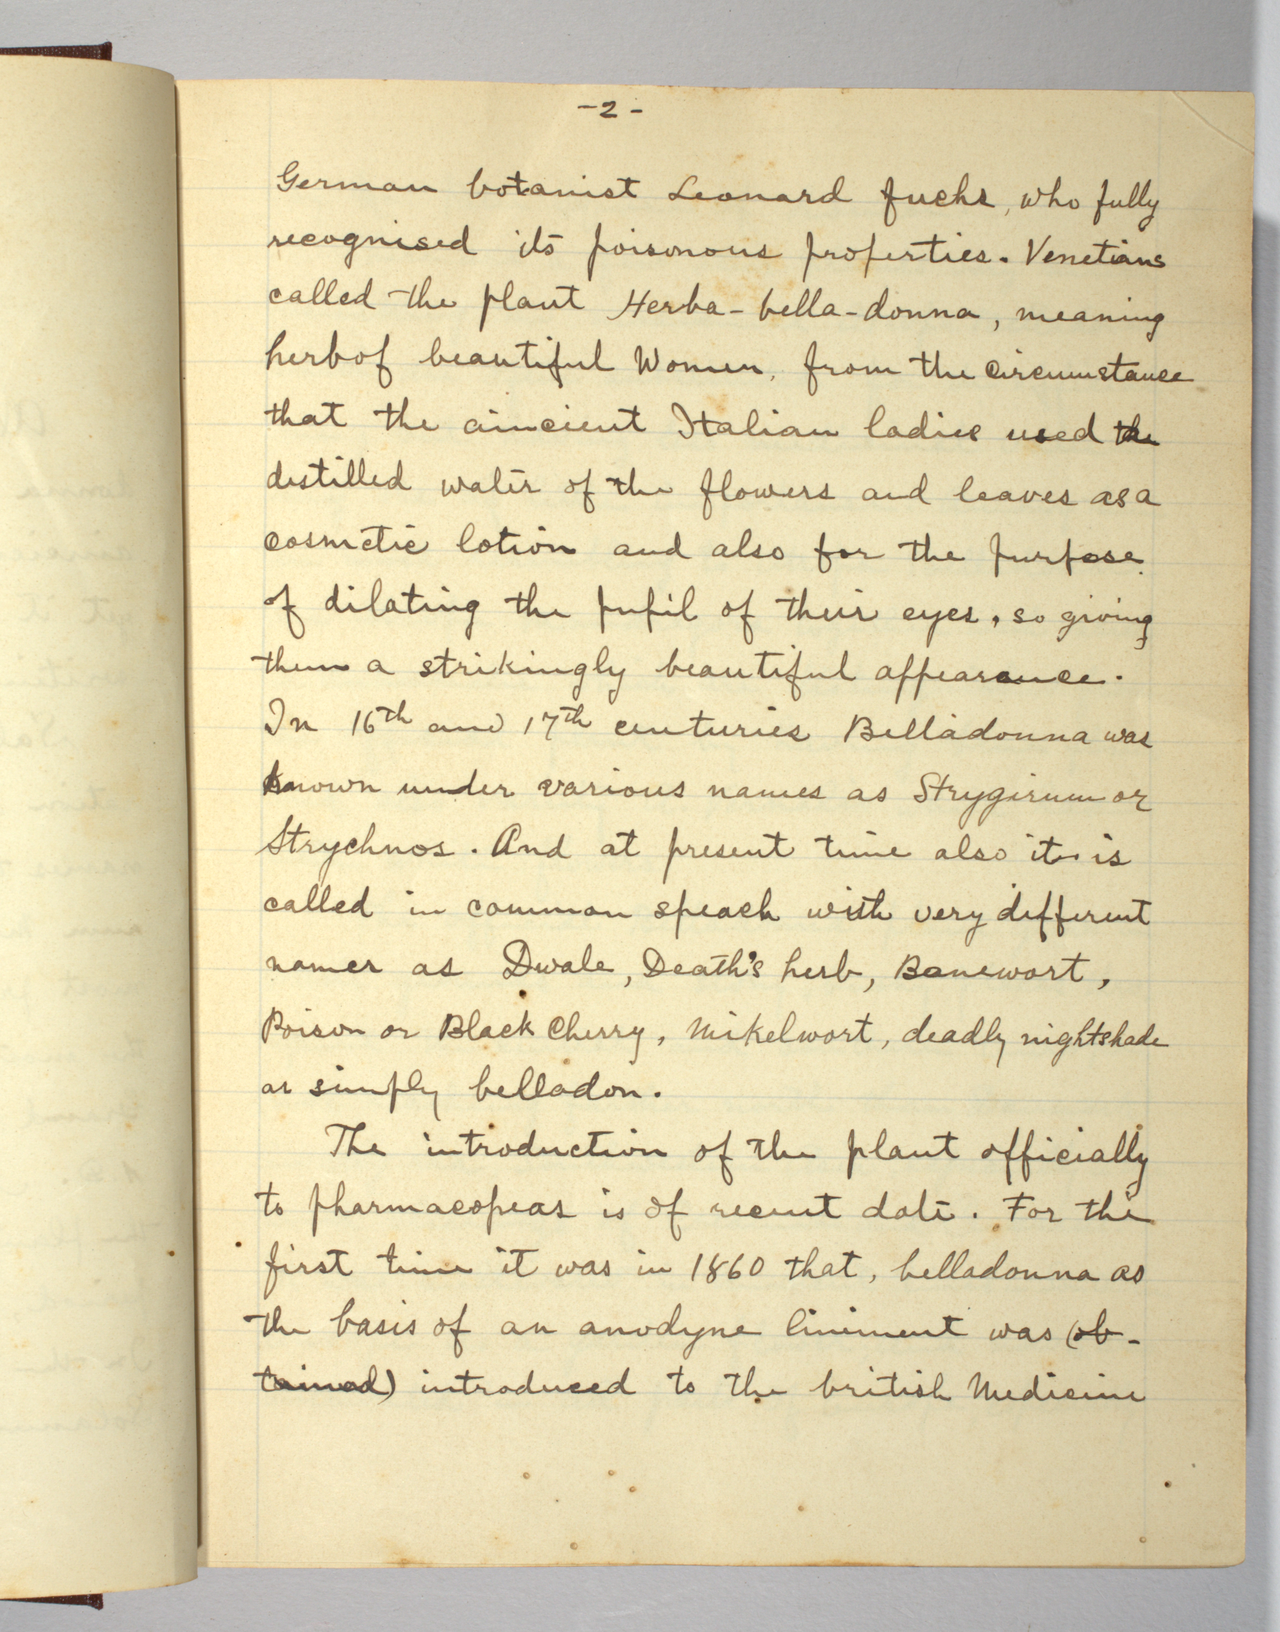 -2-
German botanist Leonard fuchs, who fully
recognised its poisonous properties. Venetians
called the plant Herba-bella-donna, meaning
herb of beautiful Women, from the circumstance
that the aincient Italian ladies used the
distilled water of the flowers and leaves as a
cosmetic lotion and also for the purpose
of dilating the pupil of their eyes, so giving
them a strikingly beautiful appearance.
In 16th and 17th centuries Belladonna was
known under various names as Strygirum or
Strychnos. And at present time also it is
called in common speach with very different
names as Dwale, Death's herb, Banewort,
Poison or Black Cherry, Mikelwort, deadly nightshade
or simply belladon.
The introduction of the plant officially
to pharmacopeas is of recent date. For the
first time it was in 1860 that, belladonna as
the basis of an anodyne liniment was (ob-
tained) introduced to the british Medicine